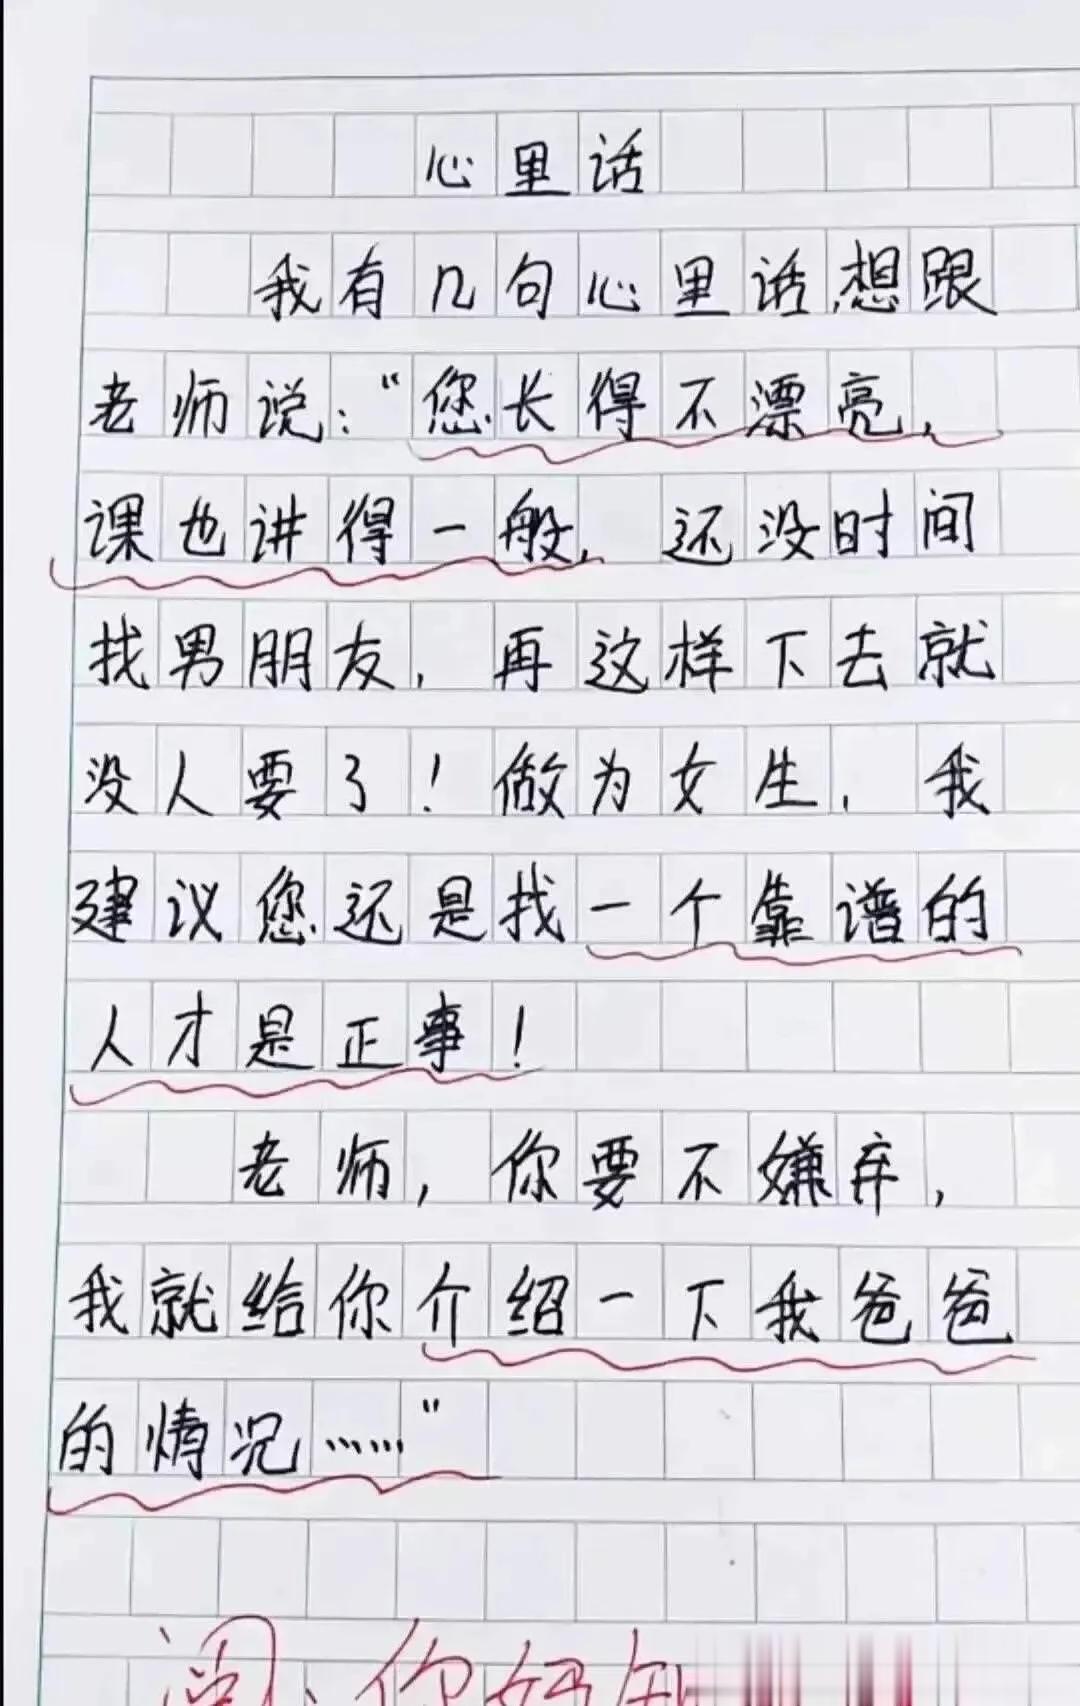 心里话
我有几句心里话,想跟
老师说:“您长得不漂亮,
课也讲得一般,还没时间
找男朋友,再这样下去就
没人要了!做为女生,我
建议您还是找一个靠谱的
人才是正事!
老师,你要不嫌弃,
我就给你介绍一下我爸爸
的情况……”
阅:你妈知